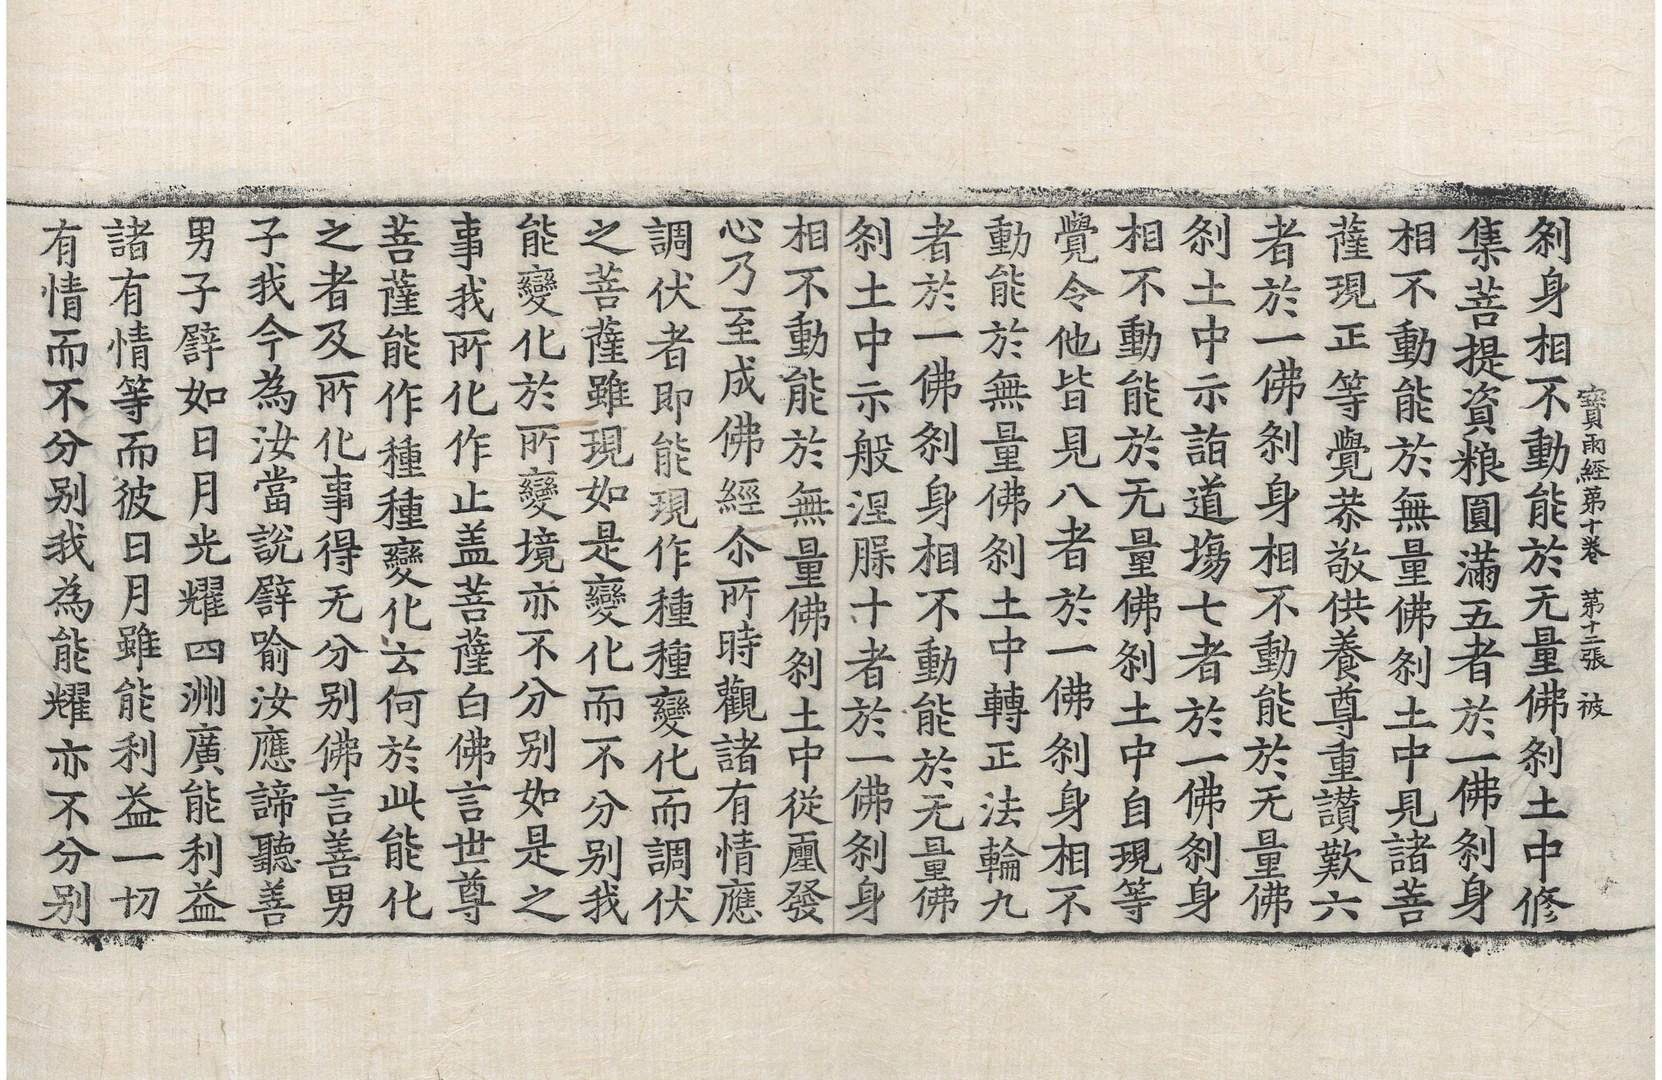 寶雨經第十卷　第十二張　被
刹身相不動能於无量佛刹土中修
集菩提資粮圓滿五者於一佛刹身
相不動能於無量佛刹土中見諸菩
薩現正等覺恭敬供養尊重讃歎六
者於一佛刹身相不動能於无量佛
刹土中示詣道塲七者於一佛刹身
相不動能於无量佛刹土中自現等
覺令他皆見八者於一佛刹身相不
動能於無量佛刹土中轉正法輪九
者於一佛刹身相不動能於无量佛
刹土中示般涅腂十者於一佛刹身
相不動能於無量佛刹土中從㕓發
心乃至成佛經尒所時觀諸有情應
調伏者即能現作種種變化而調伏
之菩薩雖現如是變化而不分別我
能變化於所變境亦不分別如是之
事我所化作止盖菩薩白佛言世尊
菩薩能作種種變化云何於此能化
之者及所化事得无分別佛言善男
子我今為汝當說譬喻汝應諦聽善
男子譬如日月光耀四洲廣能利益
諸有情等而彼日月雖能利益一切
有情而不分別我為能耀亦不分別